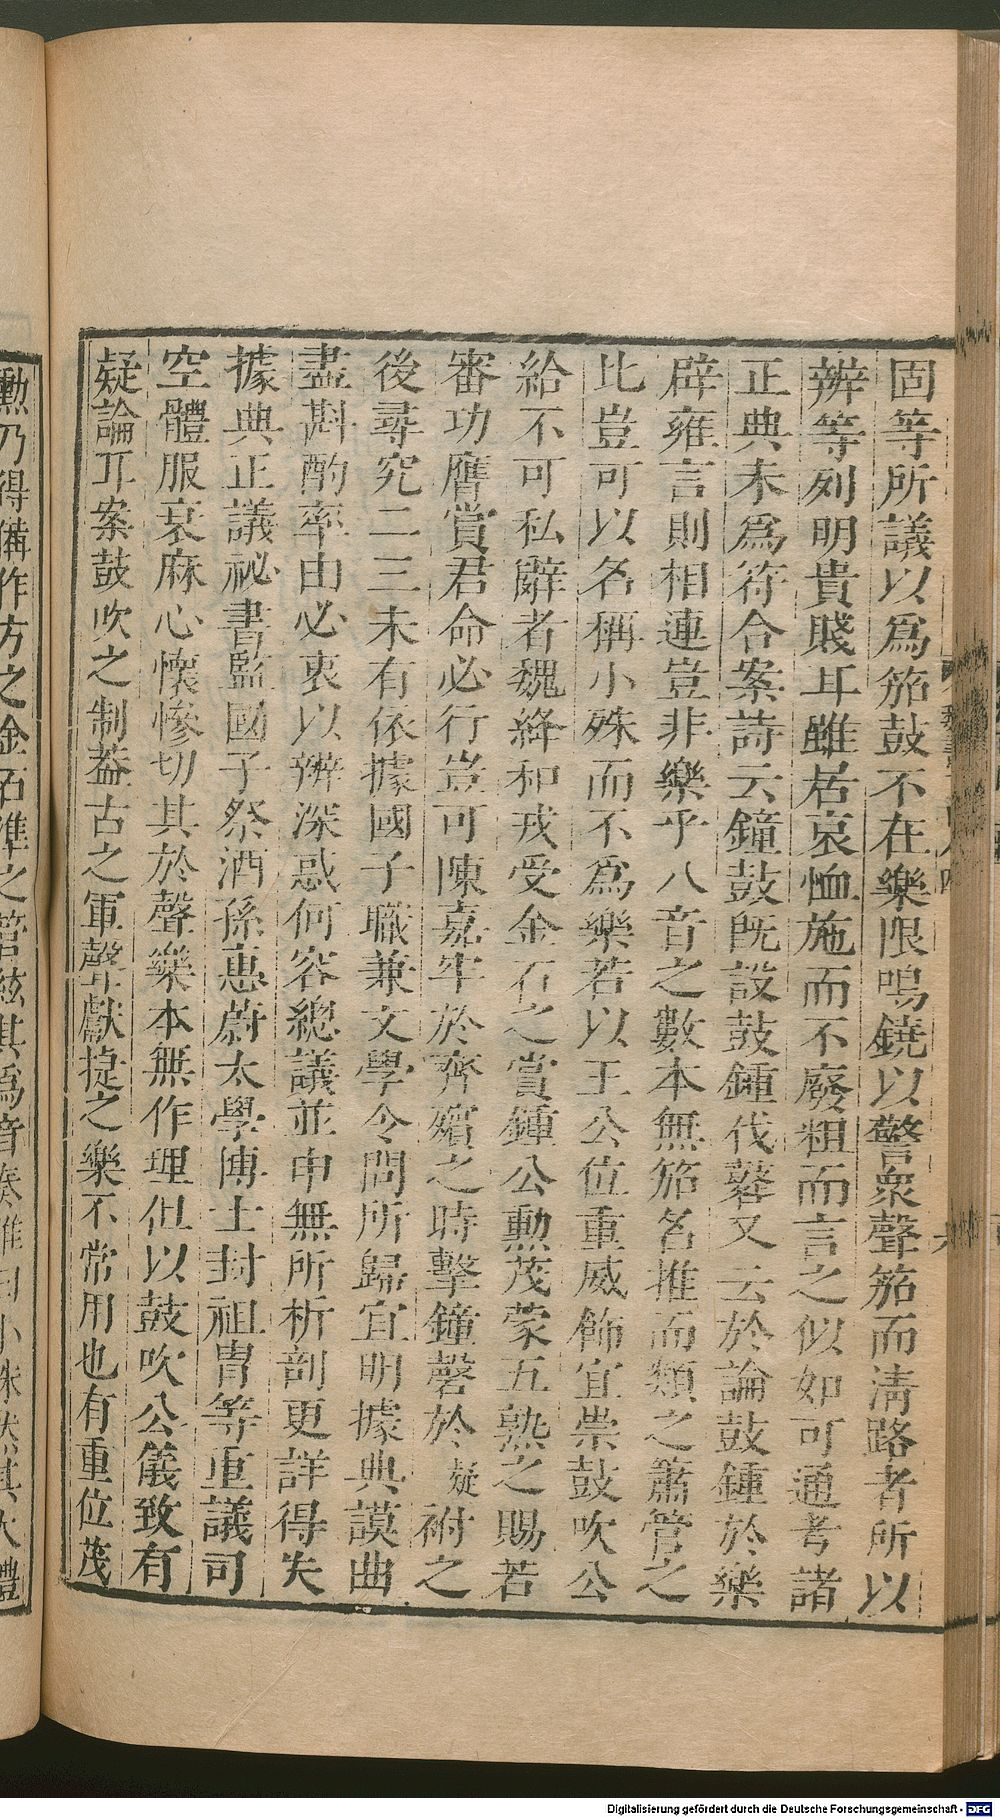 固等所議以爲笳鼓不在樂限鳴鐃以警衆聲笳而清路者所以
辨等列明貴賤耳雖居哀恤施而不廢粗而言之似如可通考諸
正典未爲符合案詩云鐘鼓既設鼓鍾伐鼛又云於論鼓鍾於樂
辟雍言則相連豈非樂乎八音之數本無笳名推而類之簫管之
比豈可以名稱小殊而不爲樂若以王公位重威飾宜崇鼓吹公
給不可私辭者魏絳和戎受金石之賞鍾公勳茂蒙五熟之賜若
審功膺賞君命必行豈可陳嘉牢於齊殯之時擊鐘磬於疑祔之
後尋究二三未有依據國子職兼文學令問所歸宜明據典謨曲
盡斟酌率由必衷以辨深惑何容總議並申無所析剖更詳得失
據典正議祕書監國子祭酒孫惠蔚太學博士封祖冑等重議司
空體服衰麻心懷慘切其於聲樂本無作理但以鼓吹公儀致有
疑論耳案鼓吹之制蓋古之軍聲獻捷之樂不常用也有重位茂
勳乃得備作方之金石準之管絃其爲音奏雖曰小殊然其大體
Digitalisierung gefördert durch die Deutsche Forschungsgemeinschaft - DFG